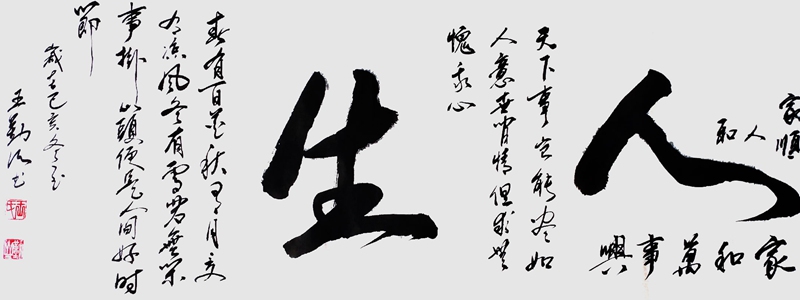 家順
人和
家和萬事興
人
天下事豈能盡如
人意世間情但求無
愧我心
生
春有百花秋有月夏
有凉風冬有雪若無閑
事掛心頭便是人間好时
節
己亥冬
王勤